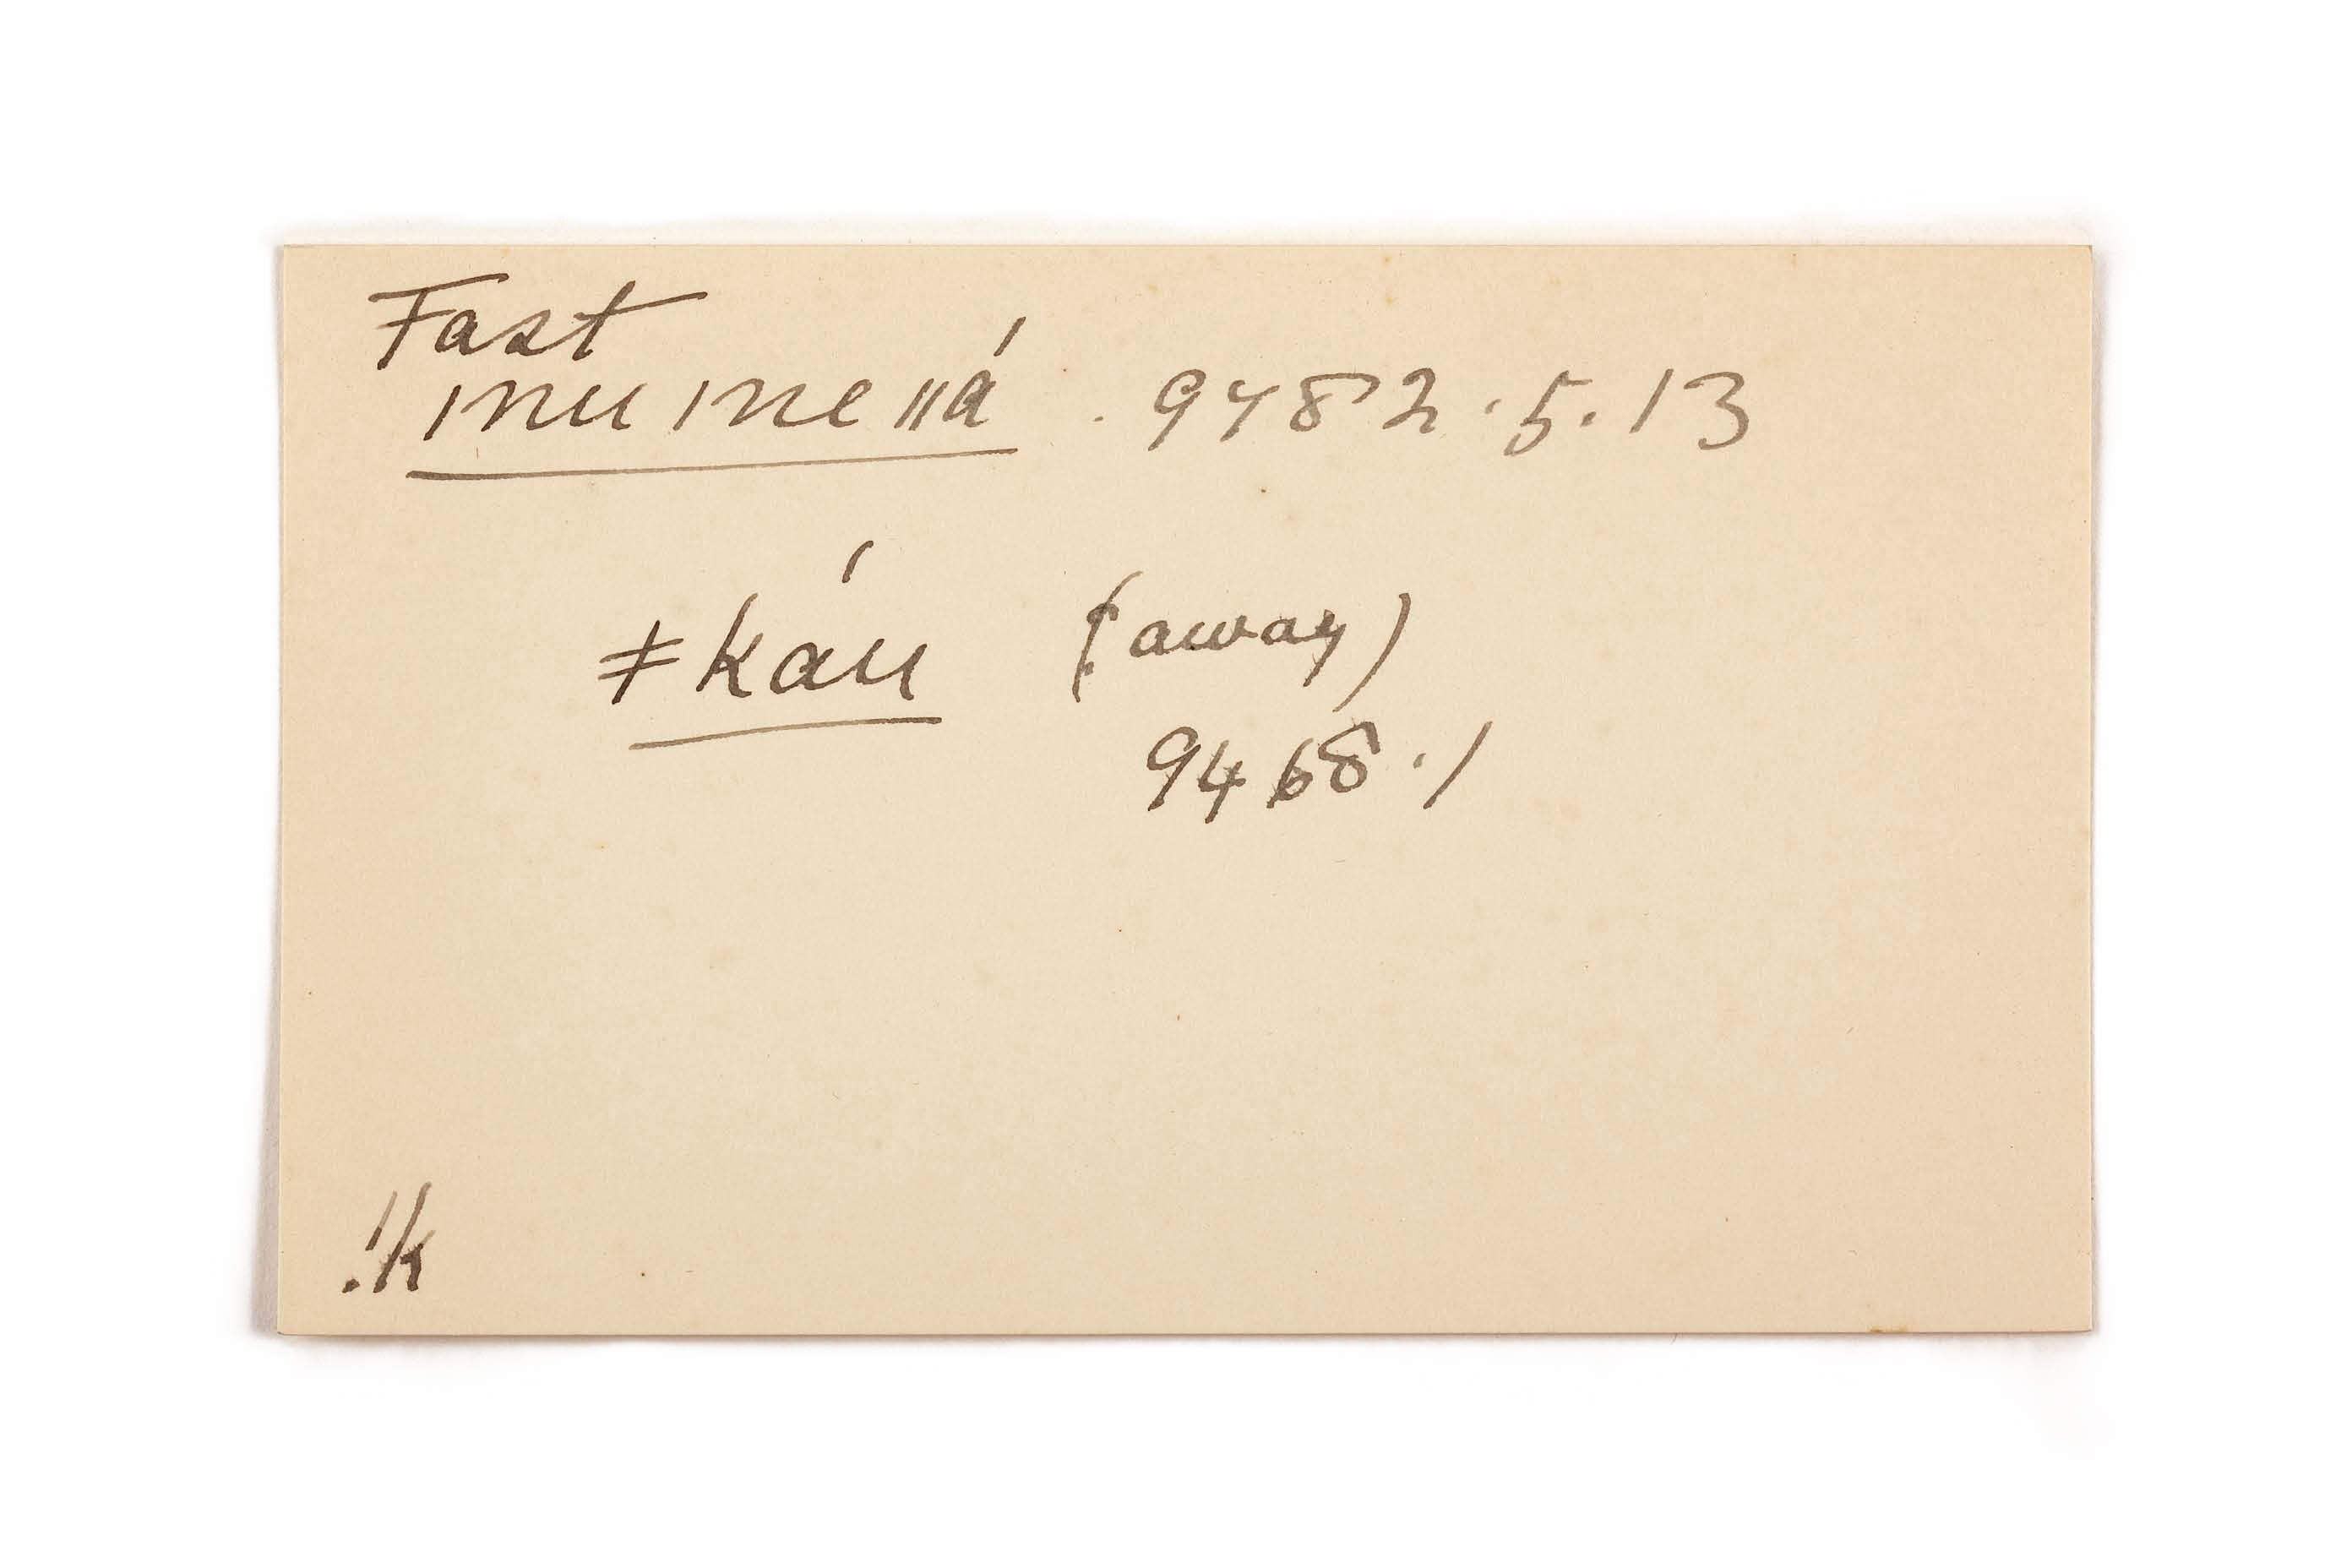 Fast
ǀnu ǀne ǁá . 9482.5.13
ǂkáu (away)
9468.1
!k